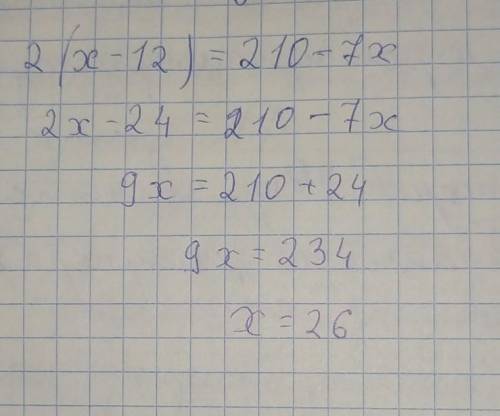 2(x-12)=210-7x
2x-24=210-7x
9x=210+24
9x=234
x=26